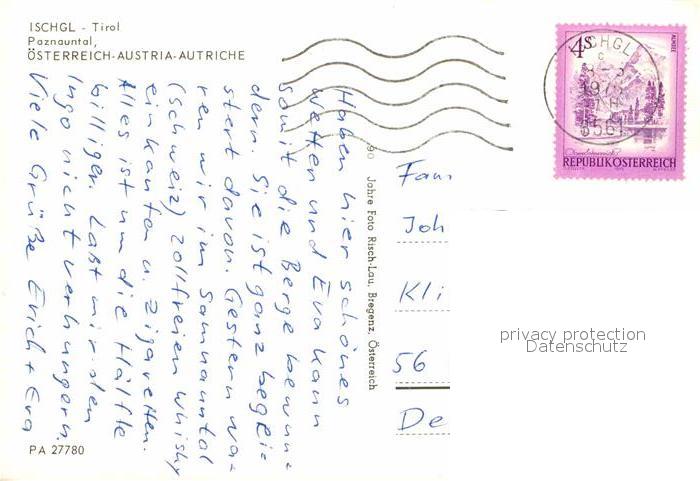 ISCHGL - Tirol
Paznauntal,
ÖSTERREICH-AUSTRIA-AUTRICHE
Haben hier schönes
Wetter und Eva kann
somit die Berge bewun-
dern. Sie ist ganz begei-
stert davon. Gestern wa-
ren wir im Samnauntal
(Schweiz) zollfreien Whisky
einkaufen u. Zigaretten.
Alles ist um die Hälfte
billiger. Laßt mir den
Ingo nicht verhungern.
Viele Grüße Erich + Eva
PA 27780
90 Jahre Foto Risch-Lau, Bregenz, Österreich
Fam
Joh
Kli
56
De
4S
ALMSEE
REPUBLIK ÖSTERREICH
ISCHGL
c
6561
privacy protection
Datenschutz